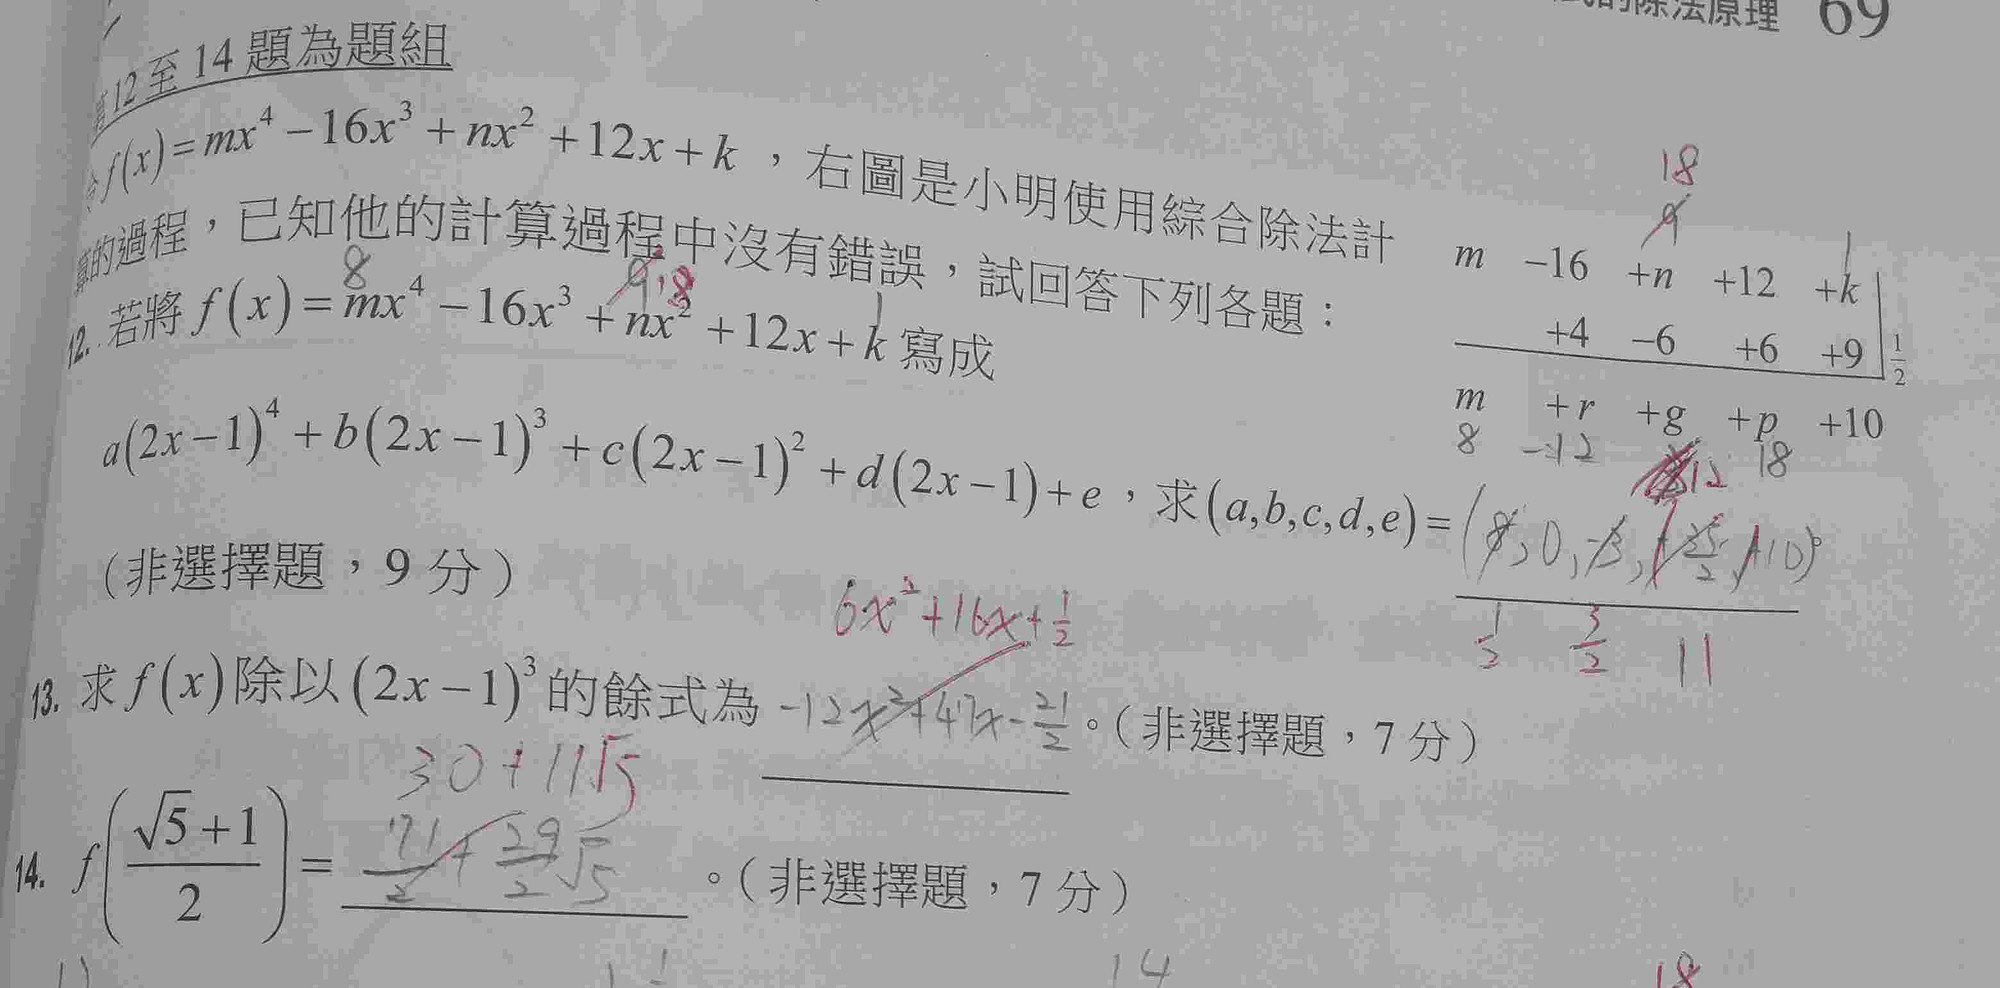 的除法原理 69
12至14題為題組
f(x)=mx⁴-16x³+nx²+12x+k，右圖是小明使用綜合除法計
算的過程，已知他的計算過程中沒有錯誤，試回答下列各題：
18
9
1
m -16 +n +12 +k
+4 -6 +6 +9 1/2
m +r +g +p +10
8 -12 12 18
8 9 18 1
12. 若將 f(x)=mx⁴-16x³+nx²+12x+k 寫成
a(2x-1)⁴+b(2x-1)³+c(2x-1)²+d(2x-1)+e，求(a,b,c,d,e)=
1/2 3/2 11
(非選擇題，9分)
6x²+16x+1/2
13. 求f(x)除以(2x-1)³的餘式為 -12x²+47x-21/2。(非選擇題，7分)
30+11√5
14. f((√5+1)/2)= 71/2+29/2√5。(非選擇題，7分)
14
18